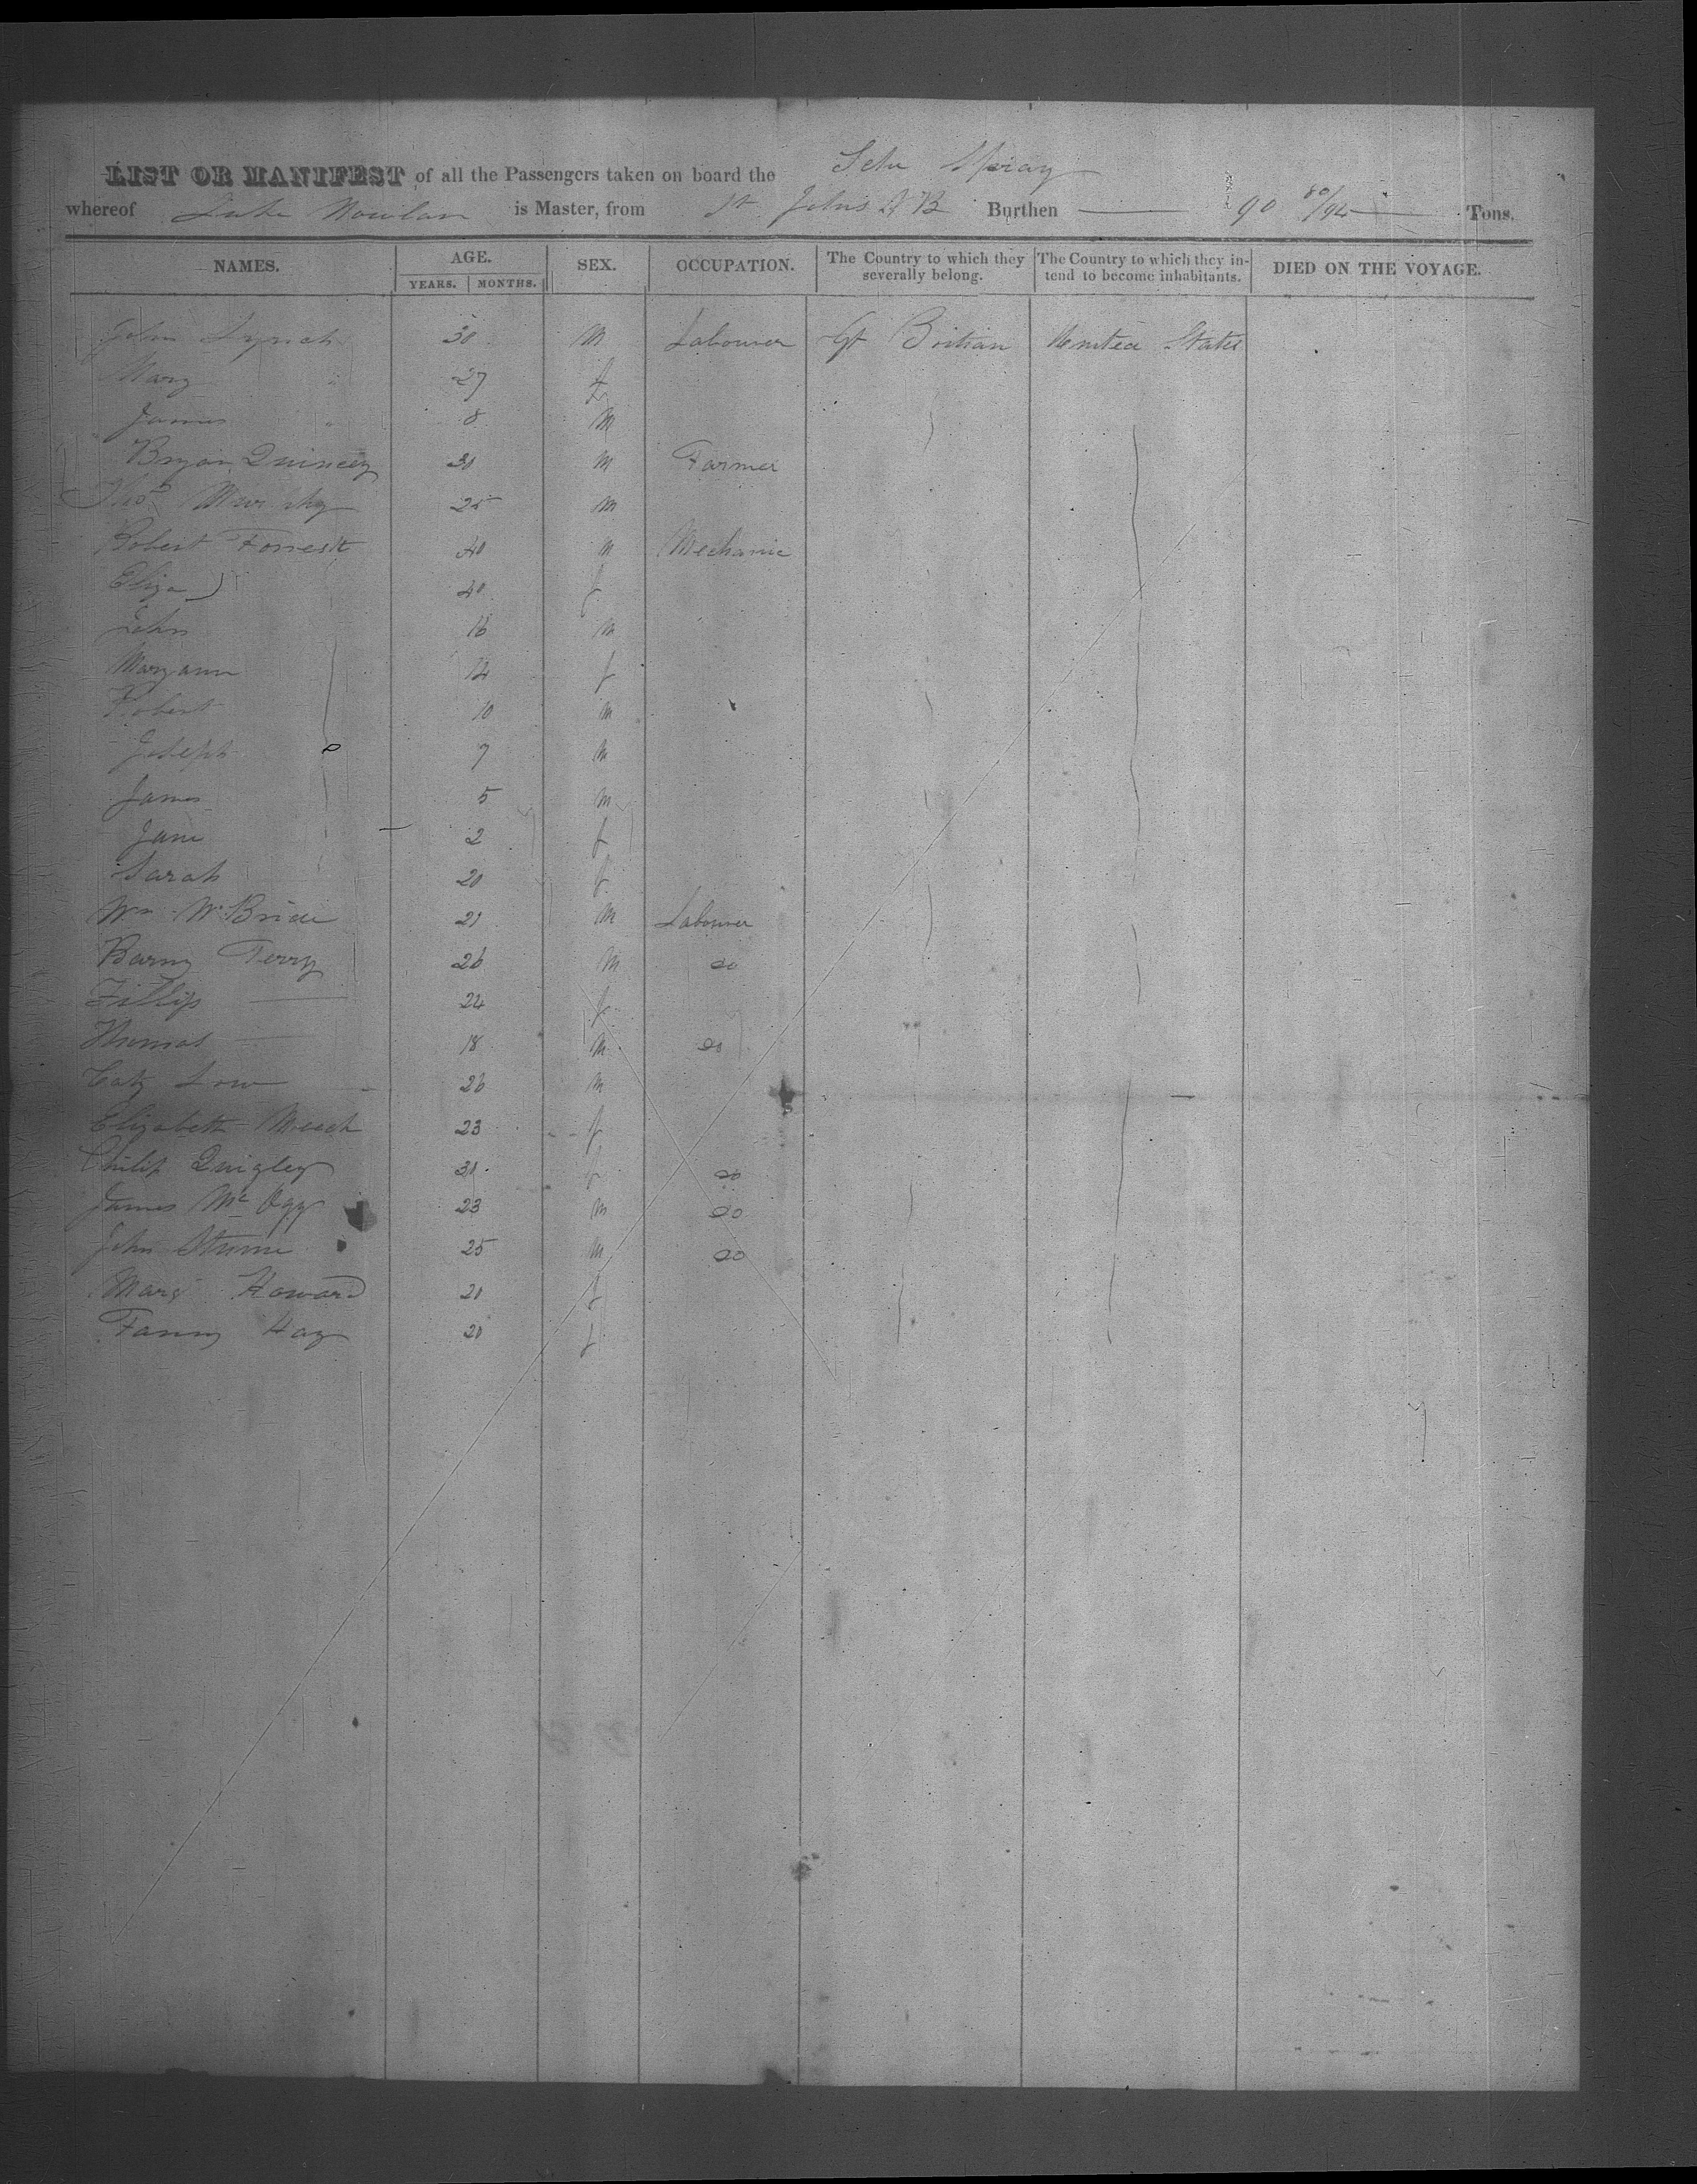 LIST OR MANIFEST of all the Passengers taken on board the Schr Spray
whereof Luke Nowlan is Master, from St Johns N B Burthen 90 80/94 Tons.
NAMES. AGE. SEX. OCCUPATION. The Country to which they severally belong. The Country to which they intend to become inhabitants. DIED ON THE VOYAGE.
YEARS. MONTHS.
John Lynch 30 M Labourer Gt Britian United States
Mary " 27 f
James " 8 M
Bryan Quincey 30 M Farmer
Thos Murphy 25 M
Robert Forrest 40 M Mechanic
Eliza 40 f
John 16 M
Maryann 14 f
Robert 10 M
Joseph 7 M
James 5 M
Jane 2 f
Sarah 20 f
Wm McBride 21 M Labourer
Barny Terry 26 M do
Fillip 24 f
Thomas 18 M do
Caty Low 26 M
Elizabeth Meech 23 f
Philip Quigley 30 f do
James Mc 23 M do
John 25 M do
Mary Howard 20 f
Fanny Hay 20 f